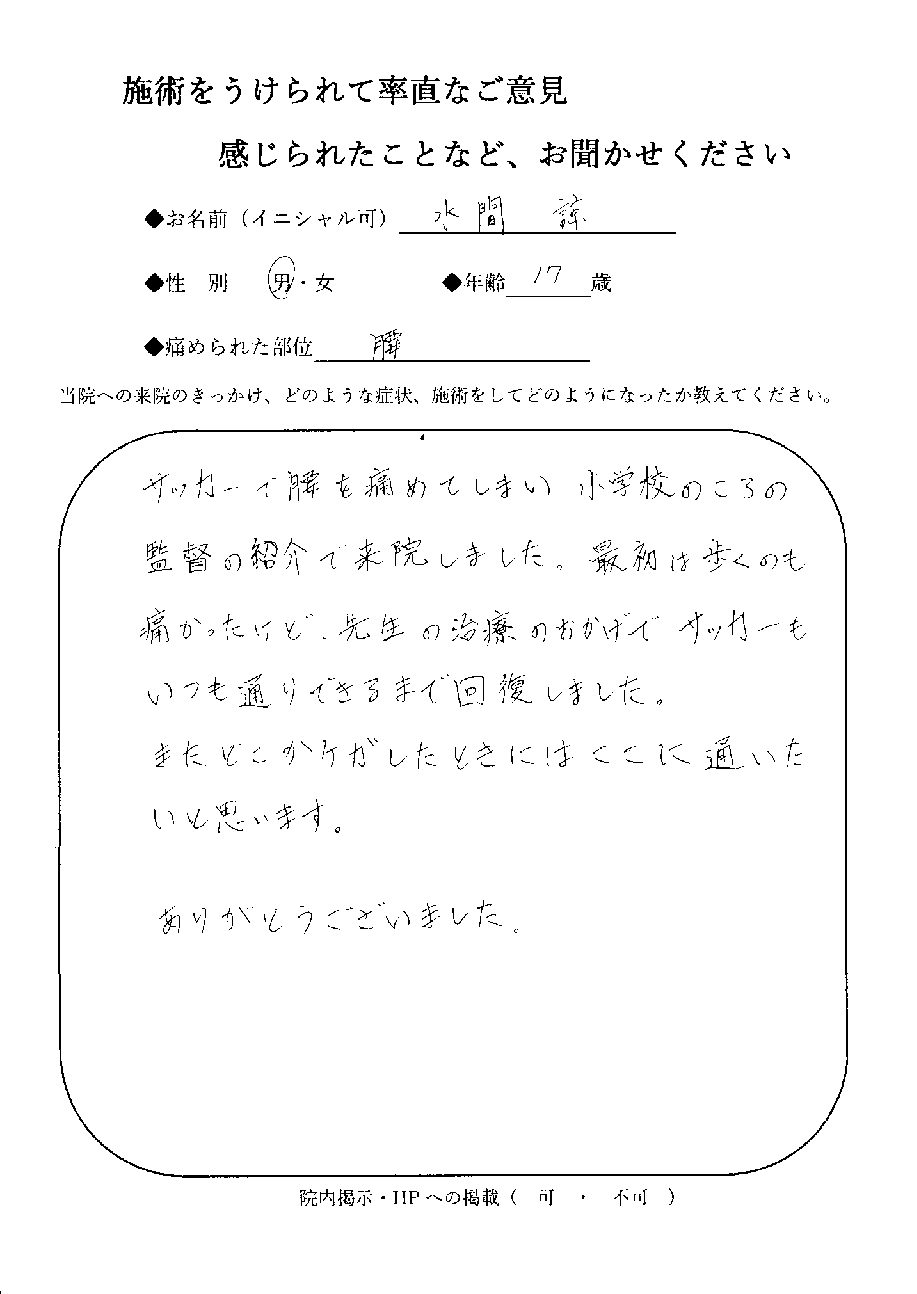 施術をうけられて率直なご意見
感じられたことなど、お聞かせください
◆お名前（イニシャル可） 水間 諒
◆性 別 男・女 ◆年齢 17 歳
◆痛められた部位 腰
当院への来院のきっかけ、どのような症状、施術をしてどのようになったか教えてください。
サッカーで腰を痛めてしまい 小学校のころの
監督の紹介で来院しました。最初は歩くのも
痛かったけど、先生の治療のおかげで サッカーも
いつも通りできるまで回復しました。
またどこかケガしたときにはここに通いた
いと思います。
ありがとうございました。
院内掲示・HPへの掲載（ 可 ・ 不可 ）